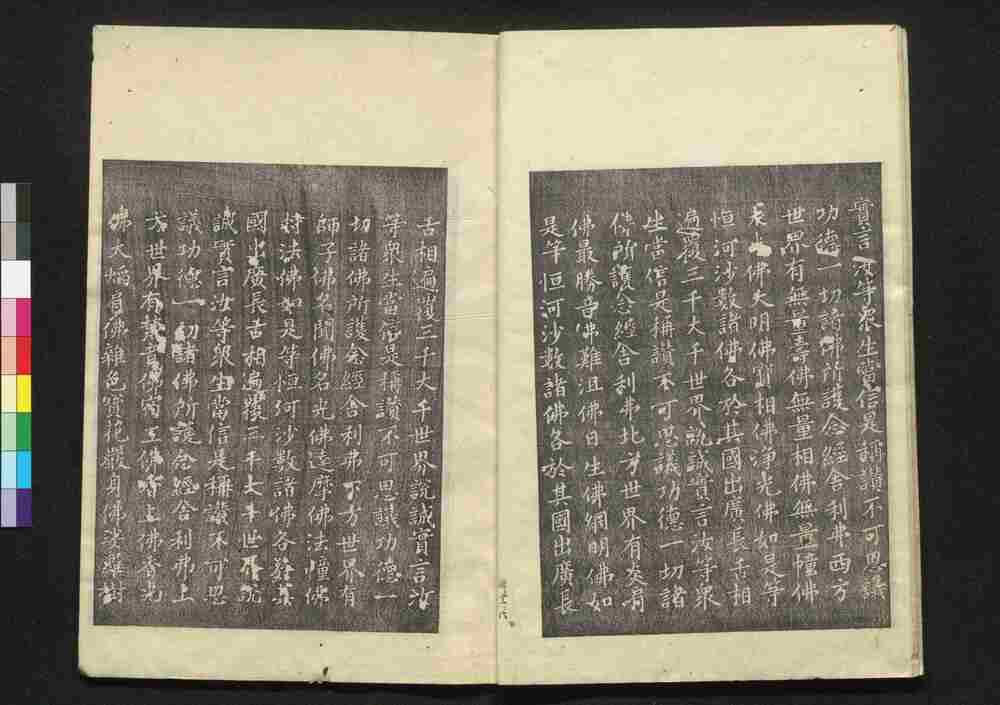 實言汝等眾生當信是稱讚不可思議
功德一切諸佛所護念經舍利弗西方
世界有無量壽佛無量相佛無量幢佛
大光佛大明佛寶相佛淨光佛如是等
恒河沙數諸佛各於其國出廣長舌相
遍覆三千大千世界說誠實言汝等眾
生當信是稱讚不可思議功德一切諸
佛所護念經舍利弗北方世界有炎肩
佛最勝音佛難沮佛日生佛網明佛如
是等恒河沙數諸佛各於其國出廣長
舌相遍覆三千大千世界說誠實言汝
等眾生當信是稱讚不可思議功德一
切諸佛所護念經舍利弗下方世界有
師子佛名聞佛名光佛達摩佛法幢佛
持法佛如是等恒河沙數諸佛各於其
國出廣長舌相遍覆三千大千世界說
誠實言汝等眾生當信是稱讚不可思
議功德一切諸佛所護念經舍利弗上
方世界有梵音佛宿王佛香上佛香光
佛大焰肩佛雜色寶花嚴身佛娑羅樹